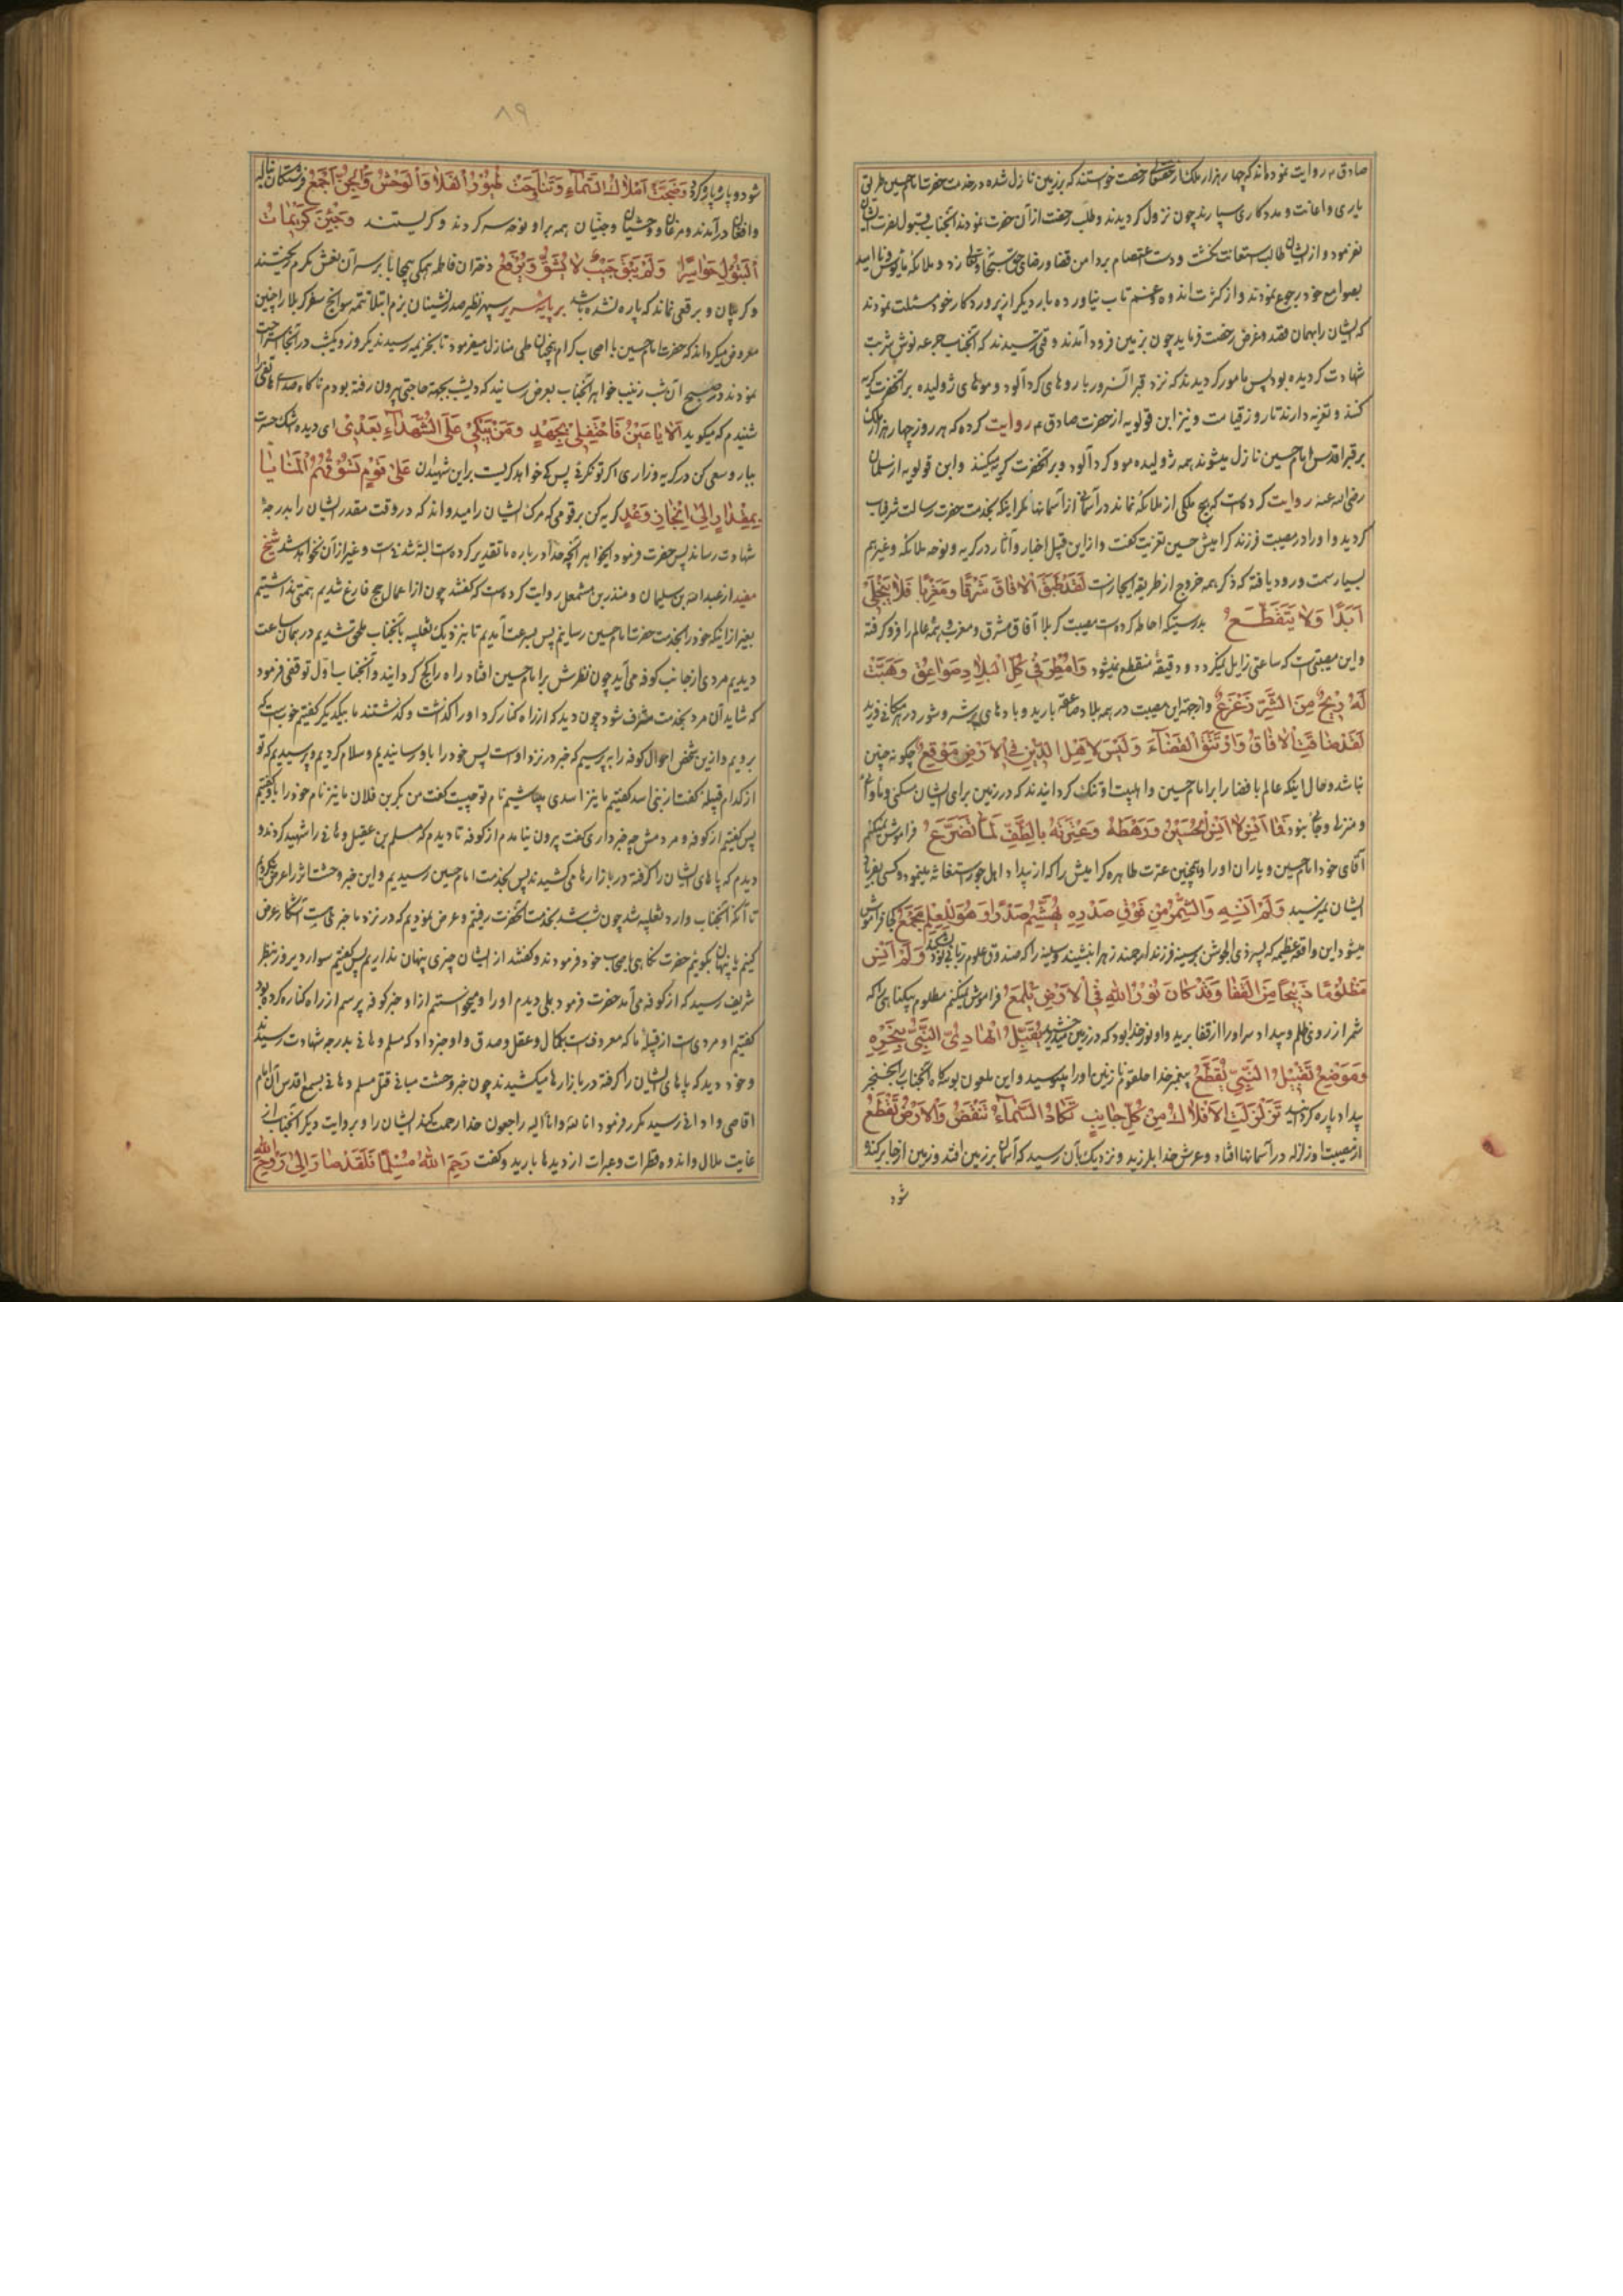 صادق ع روایت نموده‌اند که چهار هزار ملک از حقتعالی رخصت خواستند که بزمین نازل شده در خدمت حضرت امام حسین طریق
یاری و اعانت و مددکاری سپارند چون نزول کردیدند و طلب رخصت از آن حضرت نمودند آنجناب قبول نصرت ایشان
نفرمود و از ایشان طالب استعانت نکشت و دست اعتصام بر دامن قضا و رضای حق سبحانه و تعالی زد و ملائکه مایوس و ناامید
بصوامع خود رجوع نمودند و از کثرت اندوه و غم تاب نیاورده بار دیکر از پروردکار خود مسئلت نمودند
که ایشان را بهمان قصد و غرض رخصت فرماید چون بزمین فرود آمدند وقتی رسیدند که آنجناب جرعه نوش شربت
شهادت کردیده بود پس مامور کردیدند که نزد قبر آنسرور با روهای کردآلود و موهای ژولیده بر آنحضرت کریه
کنند و تعزیه دارند تا روز قیامت و نیز ابن قولویه از حضرت صادق ع روایت کرده که هر روز چهار هزار ملک
بر قبر اقدس امام حسین نازل میشوند همه ژولیده مو و کردآلود و بر آنحضرت کریه میکنند و ابن قولویه از سلمان
رضی الله عنه روایت کرده است که هیچ ملکی از ملائکه نماند در آسمانی از آسمانها مکر اینکه بخدمت حضرت رسالت شرفیاب
کردید و او را در مصیبت فرزند کرامیش حسین تعزیت کفت و از این قبیل اخبار و آثار در کریه و نوحه ملائکه و غیرهم
بسیار است ورود یافته که ذکر همه خروج از طریقه ایجاز است لَقَدْ طَبَقَ الْآفَاقَ شَرْقًا وَمَغْرِبًا فَلَا یَنْجَلِی
اَبَدًا وَلَا یَتَقَطَّعُ بدرستیکه احاطه کرده است مصیبت کربلا آفاق مشرق و مغرب و همه عالم را فرو کرفته
و این مصیبتی است که ساعتی زایل نیکردد و دقیقهٔ منقطع نمیشود وَاَمْطَرَ فِی کُلِّ الْبِلَادِ صَوَاعِقٌ وَهَبَّتْ
لَهُ رِیحٌ مِنَ الشَّرِّ زَعْزَعُ و از جهة این مصیبت در همه بلاد صاعقه بارید و بادهای پر شر و شور در هر مکانی وزید
لَقَدْ ضَاقَتِ الْآفَاقُ وَازْتَنَقَ الْفَضَاءُ وَلَیْسَ لِاَهْلِ الدِّینِ فِی الْاَرْضِ مَوْقِعُ چکونه چنین
نباشد و حال اینکه عالم با فضا را بر امام حسین و اهلبیت او تنک کردانیدند که در زمین برای ایشان مسکن و مأوایی
و منزلی و جایی نبود فَمَا اَنْسَ لَا اَنْسَ الْحُسَیْنَ وَرَهْطَهُ وَعِتْرَتَهُ بِالطَّفِّ لَمَّا تَضَرَّعُ فراموش نمیکنم
آقای خود امام حسین و یاران او را و همچنین عترت طاهره کرامیش را که از بیداد اهل جور استغاثه مینمود و کسی بفریاد
ایشان نمیرسید وَلَمْ اَنْسَهُ وَالشِّمْرُ مِنْ فَوْقِ صَدْرِهِ یُهَشِّمُ صَدْرًا وَهُوَ لِلْعِلْمِ مَجْمَعُ کجا فراموش
میشود این واقعه عظیمه که پسر ذی الجوشن بر سینه فرزند ارجمند زهرا بنشیند و سینه را که صندوق علوم ربانی بود بشکند وَلَمْ اَنْسَ
مَظْلُومًا ذَبِیحًا مِنَ الْقَفَا وَقَدْ کَانَ نُورُ اللهِ فِی الْاَرْضِ یَلْمَعُ فراموش نمیکنم مظلوم بیکناهی را که
شمر از روی ظلم و بیداد سر او را از قفا برید و او نور خدا بود که در زمین میدرخشید یُقَبِّلُ الْهَادِی النَّبِیُّ بِنَحْرِهِ
وَمَوْضِعُ تَقْبِیلِ النَّبِیِّ یُقَطَّعُ پیغمبر خدا حلقوم نازنین او را میبوسید و این ملعون بوسه‌کاه آنجناب را بخنجر
بیداد پاره کردانید تَزَلْزَلَتِ الْاَفْلَاکُ مِنْ کُلِّ جَانِبٍ تَکَادُ السَّمَاءُ تَنْقَضُّ وَالْاَرْضُ تَقْطَعُ
از مصیبت او زلزله در آسمانها افتاد و عرش خدا بلرزید و نزدیک بآن رسید که آسمان بر زمین افتد و زمین از جا برکنده
شود
۸۹
شود و پاره پاره کردد وَضَجَّتْ اَمْلَاکُ السَّمَاءِ وَتَنَاجَتْ طُیُورُ الْفَلَا وَالْوَحْشُ وَالْجِنُّ اَجْمَعُ فرشتکان بناله
و افغان درآمدند و مرغان و وحشیان و جنیان همه بر او نوحه سر کردند و کریستند وَجِئْنَ کَرِیمَاتُ
الْبَتُولِ حَوَاسِرًا وَلَمْ یَبْقَ جَیْبٌ لَا یُشَقُّ وَبُرْقَعُ دختران فاطمه همکی بیحجاب بر سر آن نعش مکرم ریختند
و کریبان و برقعی نماند که پاره نشده باشد بر پایه سریر سپهر نظیر صدرنشینان بزم ابتلا تتمه سوانح سفر کربلا را چنین
معروض میکرداند که حضرت امام حسین با اصحاب کرام همچنان طی منازل میفرمود تا بخزیمه رسیدند یکروز و یکشب در آنجا استراحت
نمودند در صبح آن شب زینب خواهر آنجناب بعرض رسانید که دیشب بجهة حاجتی بیرون رفته بودم ناکاه صدای هاتفی را
شنیدم که میکوید اَلَا یَا عَیْنُ فَاحْتَفِلِی بِجَهْدٍ وَمَنْ یَبْکِی عَلَی الشُّهَدَاءِ بَعْدِی ای دیده اشک حسرت
ببار و سعی کن در کریه و زاری اکر تو نکریی پس کی خواهد کریست بر این شهیدان عَلَی قَوْمٍ تَسُوقُهُمُ الْمَنَایَا
بِمِقْدَارٍ اِلَی اِنْجَازِ وَعْدٍ کریه کن بر قومی که مرک ایشان را میدواند که در وقت مقدر ایشان را بدرجهٔ
شهادت رساند پس حضرت فرمود ایخواهر آنچه خدا در باره ما تقدیر کرده است البته شدنی است و غیر از آن نخواهد شد شیخ
مفید از عبدالله بن سلیمان و منذر بن مشمعل روایت کرده است که کفتند چون از اعمال حج فارغ شدیم همتی نداشتیم
بغیر از اینکه خود را بخدمت حضرت امام حسین رسانیم پس بسرعت آمدیم تا بنزدیک ثعلبیه بآنجناب ملحق شدیم در همان ساعت
دیدیم مردی از جانب کوفه می‌آید چون نظرش بر امام حسین افتاد راه را کج کردانید و آنجناب اول توقفی فرمود
که شاید آن مرد بخدمت مشرف شود چون دید که از راه کنار کرد او را کذاشت و کذشتند ما بیکدیکر کفتیم خوبست که
برویم و از این شخص احوال کوفه را بپرسیم که خبر در نزد اوست پس خود را باو رسانیدیم و سلام کردیم و پرسیدیم که تو
از کدام قبیلهٔ کفت از بنی اسد کفتیم ما نیز اسدی میباشیم نام تو چیست کفت من بکر بن فلان ما نیز نام خود را باو کفتیم
پس کفتیم از کوفه و مردمش چه خبر داری کفت بیرون نیامدم از کوفه تا دیدم که مسلم بن عقیل و هانی را شهید کردند و
دیدم که پاهای ایشان را کرفته در بازارها می‌کشیدند پس بخدمت امام حسین رسیدیم و این خبر وحشت اثر را عرض نکردیم
تا آنکه آنجناب وارد ثعلبیه شد چون شب شد بخدمت آنحضرت رفتیم و عرض نمودیم که در نزد ما خبری هست آشکار عرض
کنیم یا پنهان بکوئیم حضرت نکاهی باصحاب خود فرمودند و کفتند از ایشان چیزی پنهان نداریم پس کفتیم سواری دیروز بنظر
شریف رسید که از کوفه می‌آمد حضرت فرمود بلی دیدم او را و میخواستم از او خبر کوفه بپرسم از راه کناره کرده بود
کفتیم او مردی است از قبیلهٔ ما که معروفست بکمال و عقل و صدق و او خبر داد که مسلم و هانی بدرجه شهادت رسیدند
و خود دید که پاهای ایشان را کرفته در بازارها میکشیدند چون خبر وحشت مبانی قتل مسلم و هانی بسمع اقدس آن امام
اقاصی و ادانی رسید مکرر فرمود انا لله و انا الیه راجعون خدا رحمت کند ایشان را و بروایت دیکر آنجناب از
غایت ملال و اندوه قطرات و عبرات از دیدها بارید و کفت رَحِمَ اللهُ مُسْلِمًا فَلَقَدْ صَارَ اِلَی رَوْحِ اللهِ